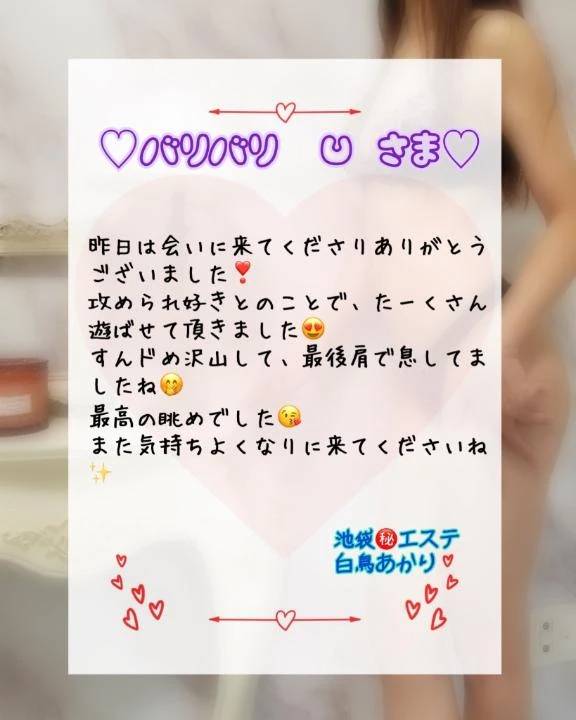 ♡バリバリ U さま♡
昨日は会いに来てくださりありがとう
ございました❣️
攻められ好きとのことで、たーくさん
遊ばせて頂きました😍
すんドめ沢山して、最後肩で息してま
したね🤭
最高の眺めでした😘
また気持ちよくなりに来てくださいね
✨
池袋㊙️エステ
白鳥あかり